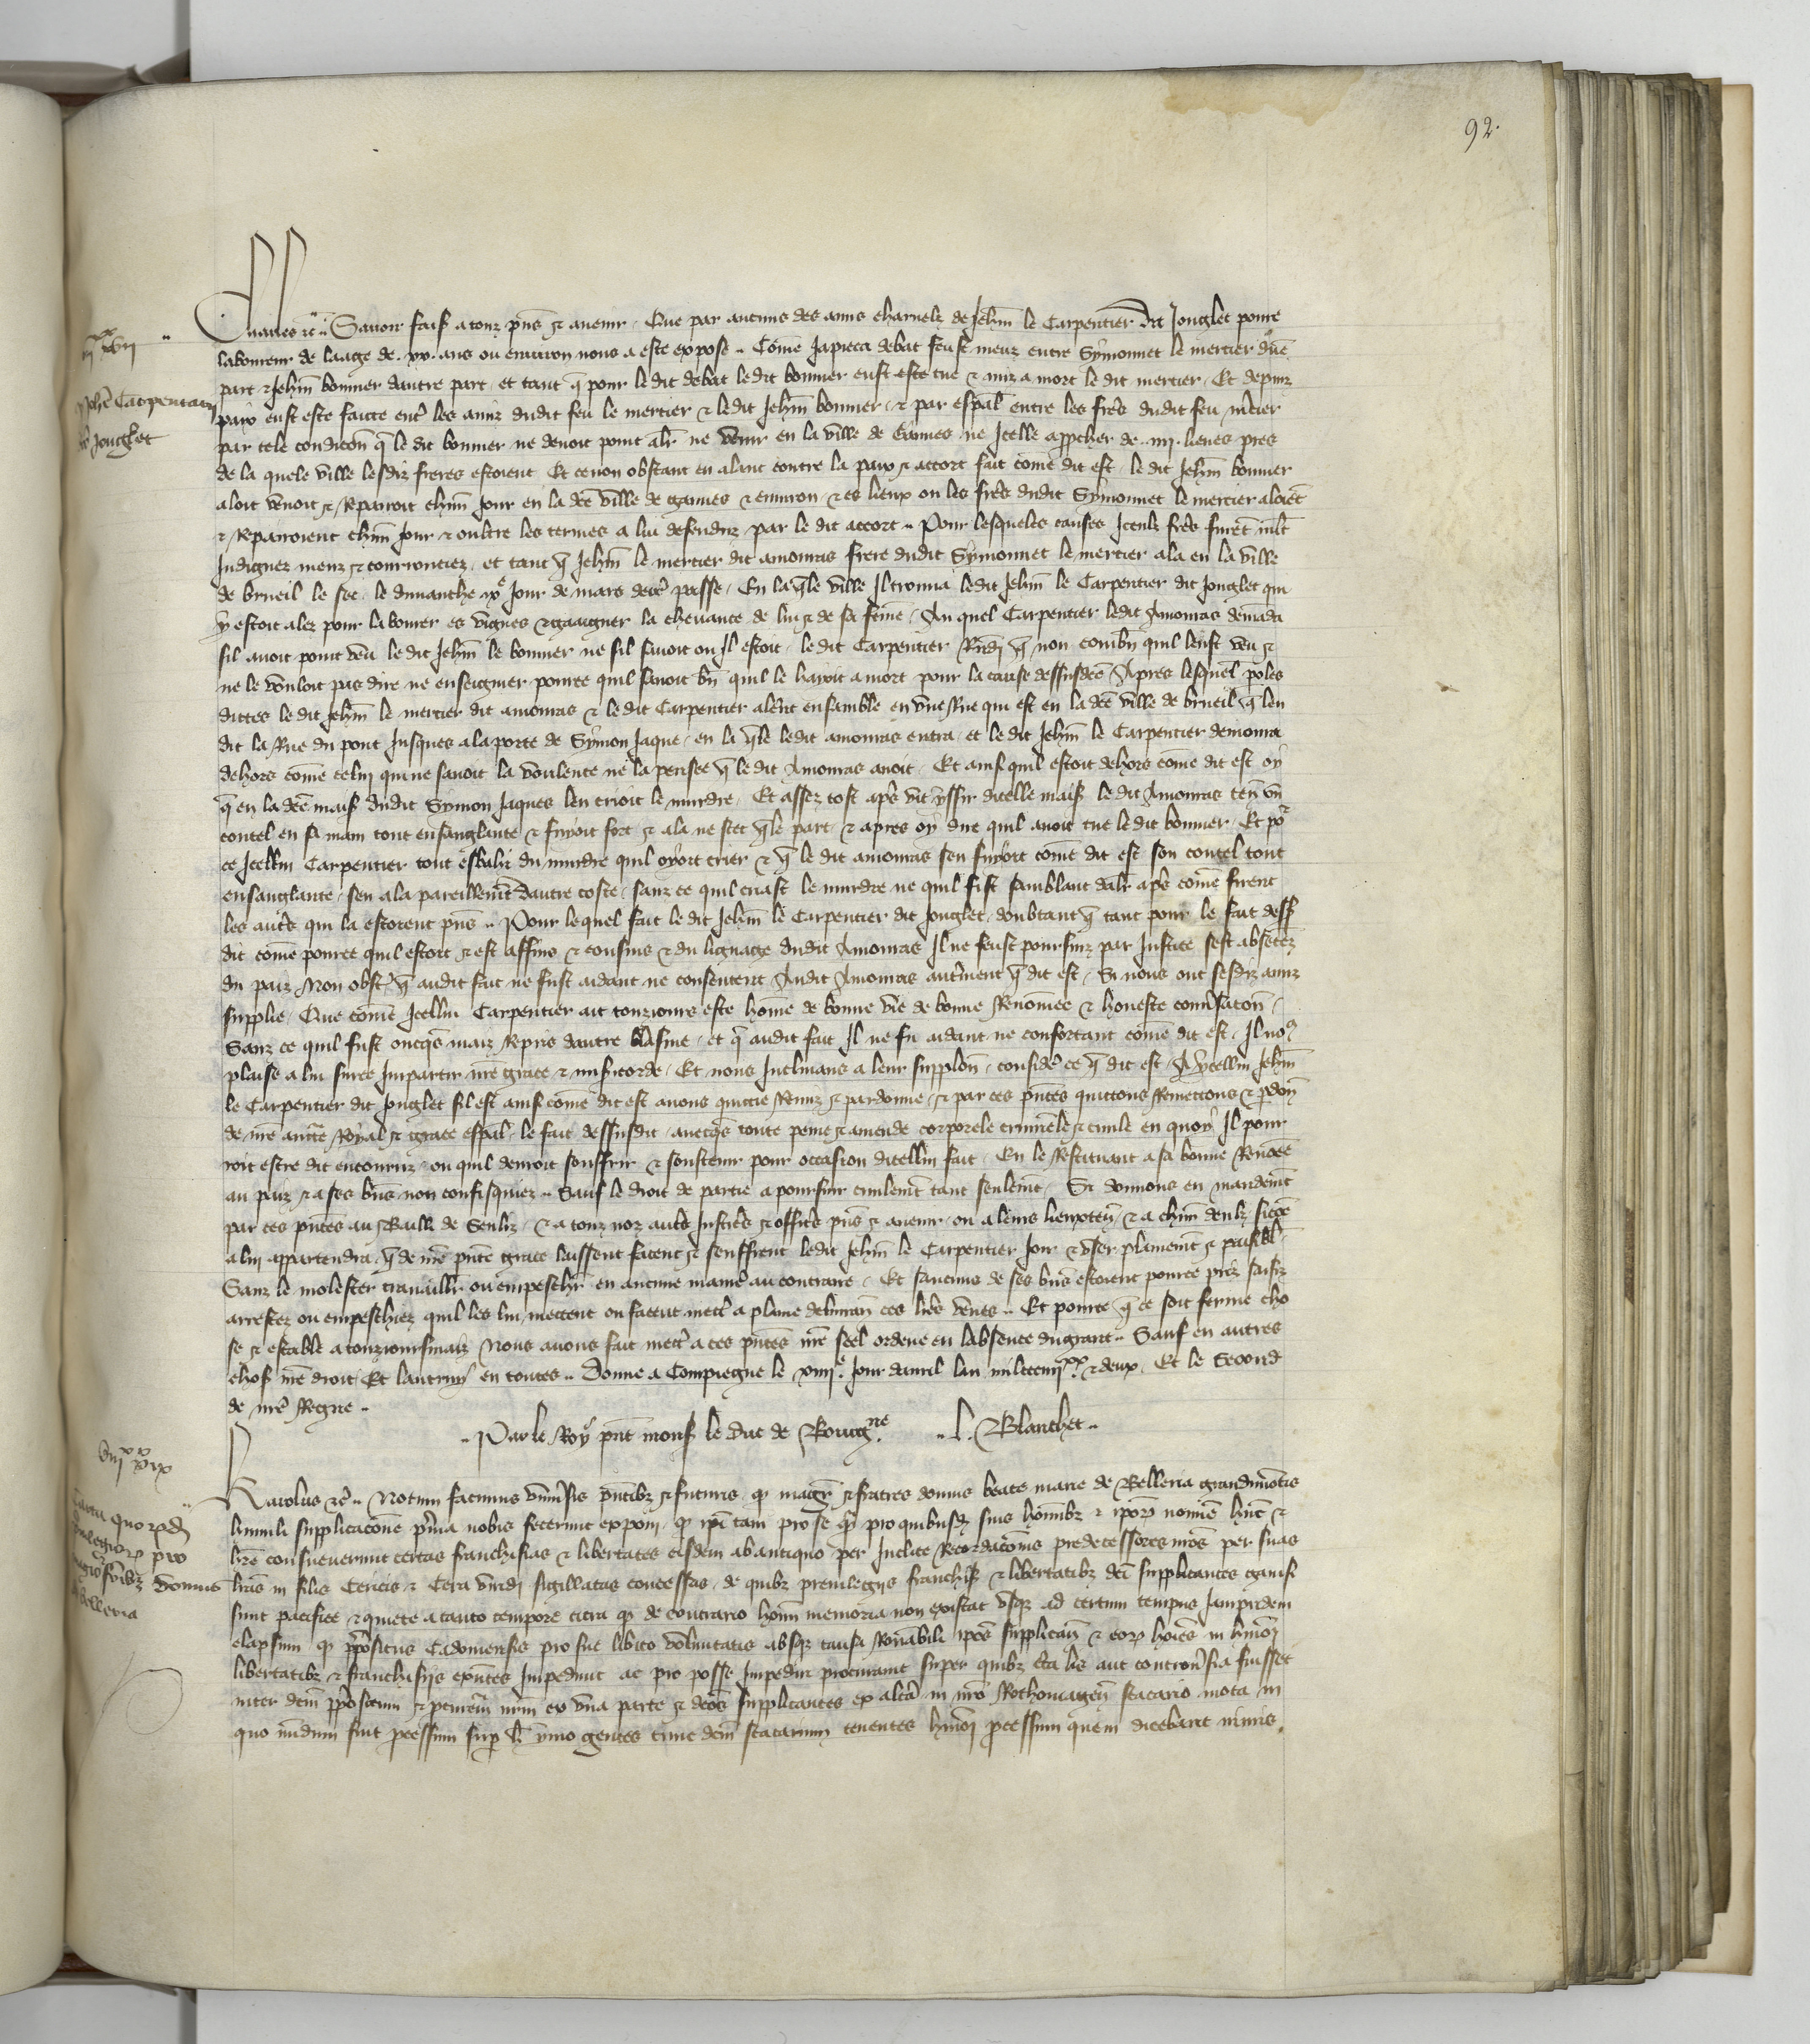 92.
Charles etc. Savoir faisons a touz pñs & avenir, Que par aucuns des amis charnelz de Jehñ le Carpentier dit Jonglet povre
laboureur de laage de .xx. ans ou environ nous a este expose .. Come Japieca debat feust meuz entre Symonnet le mercier dune
part & Jehñ bonnier dautre part, et tant q̃ pour le dit debat ledit bonnier eust este tue & miz a mort le dit mercier, Et depuiz
paix eust este faicte ent̃ les amiz dudit feu le mercier & ledit Jehñ bonnier, & par esp̃al entre les freres dudit feu m̃cier
par tele condicõn q̃ le dit bonnier ne devoit point aler ne venir en la ville de Gannes ne Icelle approcher de .iiij. lieues pres
de la quele ville lesdiz freres estoient Et ce non obstant en alant contre la paix & accort fait come dit est, le dit Jehñ bonnier
aloit venoit & Repairoit chũn Jour en la dc̃e ville de Gannes & environ, & es lieux ou les freres dudit Symonnet le mercier aloiẽt
& Repairoient chũn Jour & oultre les termes a lui defenduz par le dit accort .. Pour lesqueles causes Iceulz freres furẽt mlt̃
Indignez meuz & courrouciez, et tant q̃ Jehñ le mercier dit amouras frere dudit Symonnet le mercier ala en la ville
de brueil le sec, le dimanche ixe Jour de mars derr̃ passe, En la q̃le ville Il trouva ledit Jehñ le Carpentier dit Jonglet qui
y estoit alez pour labourer es vignes & gaaigner la chevance de lui & de sa feme, Au quel Carpentier ledit Amouras demãda
sil avoit point veu le dit Jehñ le bonnier ne sil savoit ou Il estoit, le dit Carpentier Rñdi q̃ non, combñ quil leust veu &
ne le vouloit pas dire ne enseignier pource quil savoit bñ quil le haioit a mort pour la cause dessusdc̃e, Apres lesquel̃ poles
dictes le dit Jehñ le mercier dit amouras & le dit Carpentier alerẽt ensamble en une Rue qui est en la dc̃e ville de brueil q̃ len
dit la Rue du pont Jusques a la porte de Symon Jaque, en la q̃le ledit amouras entra, et le dit Jehñ le Carpentier demoura
dehors come celui qui ne savoit la voulente ne la pensee q̃ le dit Amouras avoit, Et ainsi quil estoit dehors come dit est oy
q̃ en la dc̃e mais̃ dudit Symon Jaques len crioit le murdre, Et assez tost ap̃s vit yssir dicelle mais̃ le dit Amouras tenãt un
coutel en sa main tout ensanglante & fuyoit fort & ala ne scet q̃le part, & apres oy dire quil avoit tue le dit bonnier, Et por
ce Icellui Carpentier tout esbahi du murdre quil oyoit crier & q̃ le dit amouras sen fuyoit come dit est son coutel tout
ensanglante, sen ala pareillemẽt dautre coste, sanz ce quil criast le murdre ne quil fist samblant daler ap̃s come firent
les aut̃s qui la estoient pñs .. Pour lequel fait le dit Jehñ le Carpentier dit Jonglet, doubtant q̃ tant pour le fait dess̃
dit come pource quil estoit & est affins & cousins & du lignage dudit Amouras Il ne feust poursuiz par Justice sest absẽtez
du paiz, Non obst̃ q̃ audit fait ne fust aidant ne consentent Audit Amouras autr̃ment q̃ dit est, Si nous ont sesdiz amiz
supplie, Que come Icellui Carpentier ait touzjours este hõme de bonne vie de bonne Renõmee & honeste convsacõn,
Sanz ce quil fust oncq̃s maiz Repris dautre blasme, et q̃ audit fait Il ne fu aidant ne confortant come dit est, Il no9
plaise a lui surce Impartir nr̃e grace & misicorde, Et nous Inclinans a leur supplõn, consider̃ ce q̃ dit est, A ycellui Jehñ
le Carpentier dit Jonglet sil est ainsi come dit est avons quictie Remiz & pardonne, & par ces pñtes quictons Remettons & pdoñ
de nr̃e auct̃e Royal & grace esp̃al, le fait dessusdit, avecq̃s toute peine & amende corporele criminele & civile en quoy Il pour
roit estre dit encouruz, ou quil devroit souffrir & soustenir pour occasion dicellui fait, En le Restituant a sa bonne Renõee
au paiz & a ses bñs non confisquiez .. Sauf le droit de partie a poursuir civilemẽt tant seulemẽt, Si donnons en mandemẽt
par ces pñtes au Bailli de Senliz, & a touz noz aut̃s Justic̃s & offic̃s pñs & avenir, ou a leurs lieuxteñ, & a chũn deulz, sicõe
a lui appartendra, q̃ de nr̃e pñte grace laissent facent & seuffrent ledit Jehñ le Carpentier Joir & user plainemẽt & paisibl̃
Sanz le molester travaillier ou empeschier en aucune maniẽ au contraire, Et saucuns de ses bñs estoient pource priz saisiz
arrestez ou empeschiez quil les lui mettent ou facent mettr̃ a plaine delivrañ ces lr̃es veues .. Et pource q̃ ce soit ferme cho
se & estable a touzjoursmaiz, Nous avons fait mettr̃ a ces pñtes nr̃e seel ordene en labsence du grant .. Sauf en autres
chos̃ nr̃e droit Et lautruy en toutes .. Donne a Compiegne le xiiije Jour davril lan mil ccc iiijxx & deux, Et le Second
de nr̃e Regne ..
.. Par le Roy pñt mons̃ le duc de Bourgne .. L. Blanchet ..
Johẽ Carpentarij
dc̃i Jonglet
viijxx xix
Karolus etc̃ .. Notum facimus uniṽsis pñtibz & futuris, q̃ magr̃ & fratres domus beate marie de Belleria grandimõtis
humili supplicacõne p̃via nobis fecerunt exponi, q̃ ip̃i tam pro se q̃ pro quibusd̃ suis hominibz & ip̃orũ nomine hñt &
hr̃e consueverunt certas franchisias & libertates eisdem ab antiquo per Inclite Recordacõnis predecessores nr̃os per suas
lr̃as in filis sericis & Cera viridi sigillatas concessas, de quibz previlegijs franchis̃ & libertatibz dc̃i supplicantes gavisi
sunt pacifice & quiete a tanto tempore citra q̃ de contrario hoim memoria non existat, usqz ad certum tempus Jampridem
elapsum, q̃ p̃positus Cadomensis pro sue libito voluntatis absqz causa Rõnabili ip̃os supplicañ & eorũ hoiẽs in hm̃oi
libertatibz & franchisijs exñtes Impedivit ac pro posse Impedire procuravit super quibz cc̃a lis aut controṽsia fuisset
inter dc̃m p̃positum & procurẽm nr̃m ex una parte & dc̃os supplicantes ex alt̃a in nr̃o Rothomageñ scacario mota in
quo nõdum fuit p̃cessum sup̃ h̃ ymo gentes tunc dc̃m scacarium tenentes hm̃oi p̃cessum quem dicebant nimis
Carta quorũd̃
p̃vilegiorũ pro
magr̃o & fr̃ibz domus
de belleria